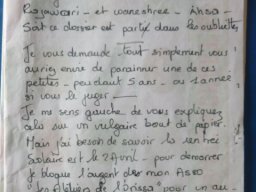 Rajawari - et waneshree - Ansa -
Soit ce dossier est partie dans les oubliettes
Je vous demande tout simplement vous
auriez envie de parrainer une de ces
petites - pendant 5 ans ou 1 année
si vous le juger
Je me sens gauche de vous expliquer
cela sur un vulgaire bout de papier.
Mais j'ai besoin de savoir la rentrée
Scolaire est le 2 Avril - pour demarrer
Je bloque l'argent chez mon ASSO
"Les Ateliers de l'Orissa" pour un au